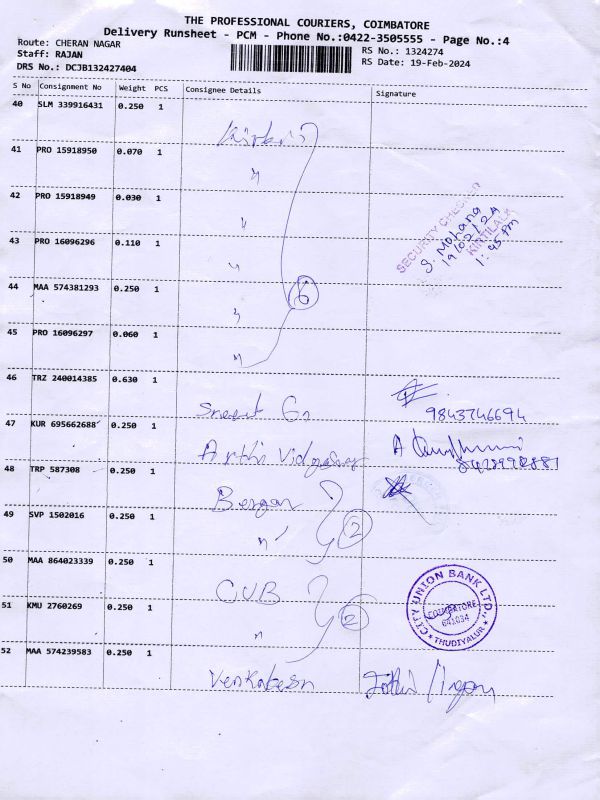 THE PROFESSIONAL COURIERS, COIMBATORE
Delivery Runsheet - PCM - Phone No.:0422-3505555 - Page No.:4
Route: CHERAN NAGAR
RS No.: 1324274
Staff: RAJAN
RS Date: 19-Feb-2024
DRS No.: DCJB132427404
S No Consignment No Weight PCS Consignee Details Signature
40 SLM 339916431 0.250 1
41 PRO 15918950 0.070 1
"
42 PRO 15918949 0.030 1
"
43 PRO 16096296 0.110 1
"
SECURITY CHECKED
S. Mohana
19/02/24
KIRTILALS
1:45 PM
44 MAA 574381293 0.250 1
6
"
45 PRO 16096297 0.060 1
"
46 TRZ 240014385 0.630 1
9843746694
47 KUR 695662688 0.250 1
Arthi
48 TRP 587308 0.250 1
49 SVP 1502016 0.250 1
" 2
50 MAA 864023339 0.250 1
CUB
51 KMU 2760269 0.250 1
" 2
CITY UNION BANK LTD.,
COIMBATORE
641034
* THUDIYALUR *
52 MAA 574239583 0.250 1
Venkatesh